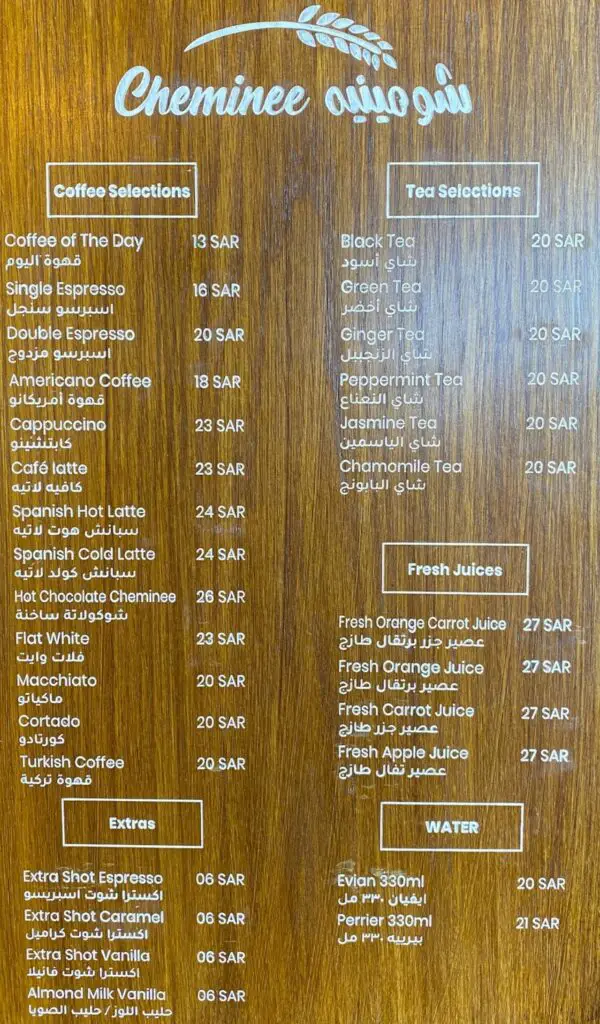 Cheminee شومينيه
Coffee Selections
Coffee of The Day 13 SAR
قهوة اليوم
Single Espresso 16 SAR
اسبرسو سنجل
Double Espresso 20 SAR
اسبرسو مزدوج
Americano Coffee 18 SAR
قهوة أمريكانو
Cappuccino 23 SAR
كابتشينو
Café latte 23 SAR
كافيه لاتيه
Spanish Hot Latte 24 SAR
سبانش هوت لاتيه
Spanish Cold Latte 24 SAR
سبانش كولد لاتيه
Hot Chocolate Cheminee 26 SAR
شوكولاتة ساخنة
Flat White 23 SAR
فلات وايت
Macchiato 20 SAR
ماكياتو
Cortado 20 SAR
كورتادو
Turkish Coffee 20 SAR
قهوة تركية
Extras
Extra Shot Espresso 06 SAR
اكسترا شوت اسبريسو
Extra Shot Caramel 06 SAR
اكسترا شوت كراميل
Extra Shot Vanilla 06 SAR
اكسترا شوت فانيلا
Almond Milk Vanilla 06 SAR
حليب اللوز / حليب الصويا
Tea Selections
Black Tea 20 SAR
شاي أسود
Green Tea 20 SAR
شاي أخضر
Ginger Tea 20 SAR
شاي الزنجبيل
Peppermint Tea 20 SAR
شاي النعناع
Jasmine Tea 20 SAR
شاي الياسمين
Chamomile Tea 20 SAR
شاي البابونج
Fresh Juices
Fresh Orange Carrot Juice 27 SAR
عصير جزر برتقال طازج
Fresh Orange Juice 27 SAR
عصير برتقال طازج
Fresh Carrot Juice 27 SAR
عصير جزر طازج
Fresh Apple Juice 27 SAR
عصير تفال طازج
WATER
Evian 330ml 20 SAR
ايفيان ٣٣٠ مل
Perrier 330ml 21 SAR
بيرييه ٣٣٠ مل